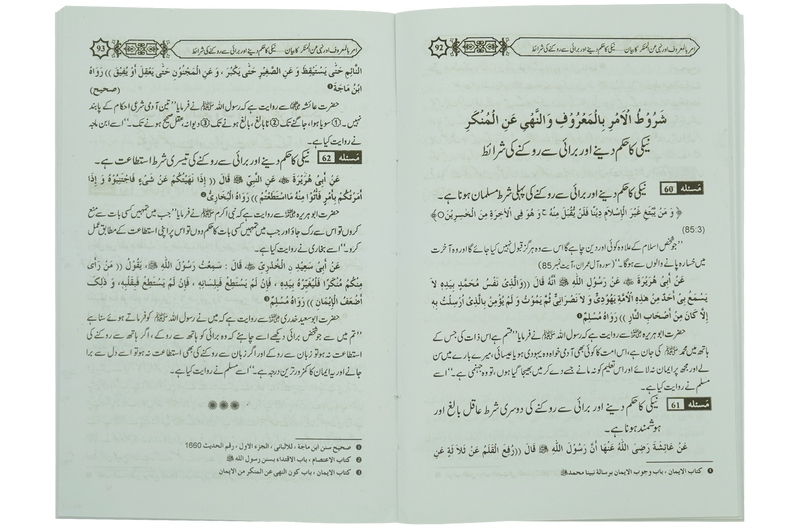 امر بالمعروف اور نہی عن المنکر کا بیان ..... نیکی کا حکم دینے اور برائی سے روکنے کی شرائط
92
شُرُوْطُ الْاَمْرِ بِالْمَعْرُوْفِ وَالنَّهْیِ عَنِ الْمُنْكَرِ
نیکی کا حکم دینے اور برائی سے روکنے کی شرائط
مَسئلہ 60 نیکی کا حکم دینے اور برائی سے روکنے کی پہلی شرط مسلمان ہونا ہے۔
﴿ وَ مَنْ يَّبْتَغِ غَيْرَ الْاِسْلَامِ دِيْنًا فَلَنْ يُّقْبَلَ مِنْهُ ج وَ هُوَ فِی الْاٰخِرَةِ مِنَ الْخٰسِرِيْنَ○ ﴾
(85:3)
’’جو شخص اسلام کے علاوہ کوئی اور دین چاہے گا اس سے وہ ہرگز قبول نہیں کیا جائے گا اور وہ آخرت
میں خسارہ پانے والوں سے ہوگا۔‘‘ (سورہ آل عمران، آیت نمبر 85)
عَنْ اَبِیْ هُرَيْرَةَ ﷺ عَنْ رَسُوْلِ اللّٰهِ ﷺ اَنَّهٗ قَالَ ((وَالَّذِیْ نَفْسُ مُحَمَّدٍ بِيَدِهٖ لَا
يَسْمَعُ بِیْ اَحَدٌ مِنْ هٰذِهِ الْاُمَّةِ يَهُوْدِیٌّ وَ لَا نَصْرَانِیٌّ ثُمَّ يَمُوْتُ وَ لَمْ يُؤْمِنْ بِالَّذِیْ اُرْسِلْتُ بِهٖ
اِلَّا كَانَ مِنْ اَصْحَابِ النَّارِ )) رَوَاهُ مُسْلِمٌ❶
حضرت ابو ہریرہ سے روایت ہے کہ رسول اللہ ﷺ نے فرمایا ’’قسم ہے اس ذات کی جس کے
ہاتھ میں محمد ﷺ کی جان ہے، اس امت کا کوئی بھی آدمی خواہ وہ یہودی ہو یا عیسائی، میرے بارے میں سن
لے اور مجھ پر ایمان نہ لائے اور اس تعلیم کو نہ مانے جسے دے کر میں بھیجا گیا ہوں، تو وہ جہنمی ہے۔‘‘ اسے
مسلم نے روایت کیا ہے۔
مَسئلہ 61 نیکی کا حکم دینے اور برائی سے روکنے کی دوسری شرط عاقل بالغ اور
ہوشمند ہونا ہے۔
عَنْ عَائِشَةَ رَضِیَ اللّٰهُ عَنْهَا اَنَّ رَسُوْلَ اللّٰهِ ﷺ قَالَ ((رُفِعَ الْقَلَمُ عَنْ ثَلَاثَةٍ عَنِ
❶ کتاب الایمان ، باب وجوب الایمان برسالة نبینا محمد ﷺ
امر بالمعروف اور نہی عن المنکر کا بیان ..... نیکی کا حکم دینے اور برائی سے روکنے کی شرائط
93
النَّائِمِ حَتّٰی يَسْتَيْقِظَ وَ عَنِ الصَّغِيْرِ حَتّٰی يَكْبُرَ ، وَ عَنِ الْمَجْنُوْنِ حَتّٰی يَعْقِلَ اَوْ يُفِيْقَ )) رَوَاهُ
ابْنُ مَاجَةَ❶ (صحیح)
حضرت عائشہ سے روایت ہے کہ رسول اللہ ﷺ نے فرمایا ’’تین آدمی شرعی احکام کے پابند
نہیں۔ ① سویا ہوا، جاگنے تک ② نابالغ، بالغ ہونے تک ③ دیوانہ، عقل صحیح ہونے تک۔‘‘ اسے ابن ماجہ
نے روایت کیا ہے۔
مَسئلہ 62 نیکی کا حکم دینے اور برائی سے روکنے کی تیسری شرط استطاعت ہے۔
عَنْ اَبِیْ هُرَيْرَةَ عَنِ النَّبِیِّ ﷺ قَالَ (( اِذَا نَهَيْتُكُمْ عَنْ شَیْءٍ فَاجْتَنِبُوْهُ وَ اِذَا
اَمَرْتُكُمْ بِاَمْرٍ فَاْتُوْا مِنْهُ مَا اسْتَطَعْتُمْ )) رَوَاهُ الْبُخَارِیُّ❷
حضرت ابو ہریرہ سے روایت ہے کہ نبی اکرم ﷺ نے فرمایا ’’جب میں تمہیں کسی بات سے منع
کروں تو اس سے رک جاؤ اور جب میں تمہیں کسی بات کا حکم دوں تو اس پر اپنی استطاعت کے مطابق عمل
کرو۔‘‘ اسے بخاری نے روایت کیا ہے۔
عَنْ اَبِیْ سَعِيْدِ نِ الْخُدْرِیِّ قَالَ : سَمِعْتُ رَسُوْلَ اللّٰهِ ﷺ يَقُوْلُ (( مَنْ رَاٰی
مِنْكُمْ مُنْكَرًا فَلْيُغَيِّرْهُ بِيَدِهٖ ، فَاِنْ لَمْ يَسْتَطِعْ فَبِلِسَانِهٖ ، فَاِنْ لَمْ يَسْتَطِعْ فَبِقَلْبِهٖ ، وَ ذٰلِكَ
اَضْعَفُ الْاِيْمَانِ )) رَوَاهُ مُسْلِمٌ❸
حضرت ابوسعید خدری سے روایت ہے کہ میں نے رسول اللہ ﷺ کو فرماتے ہوئے سنا ہے
’’تم میں سے جو شخص برائی دیکھے اسے چاہئے کہ وہ برائی کو ہاتھ سے روکے، اگر ہاتھ سے روکنے کی
استطاعت نہ ہو تو زبان سے روکے اور اگر زبان سے روکنے کی بھی استطاعت نہ ہو تو اسے دل سے برا
جانے اور یہ ایمان کا کمزور ترین درجہ ہے۔‘‘ اسے مسلم نے روایت کیا ہے۔
❶ صحیح سنن ابن ماجة ، للالبانی ، الجزء الاول ، رقم الحدیث 1660
❷ کتاب الاعتصام ، باب الاقتداء بسنن رسول الله ﷺ
❸ کتاب الایمان ، باب کون النهی عن المنکر من الایمان